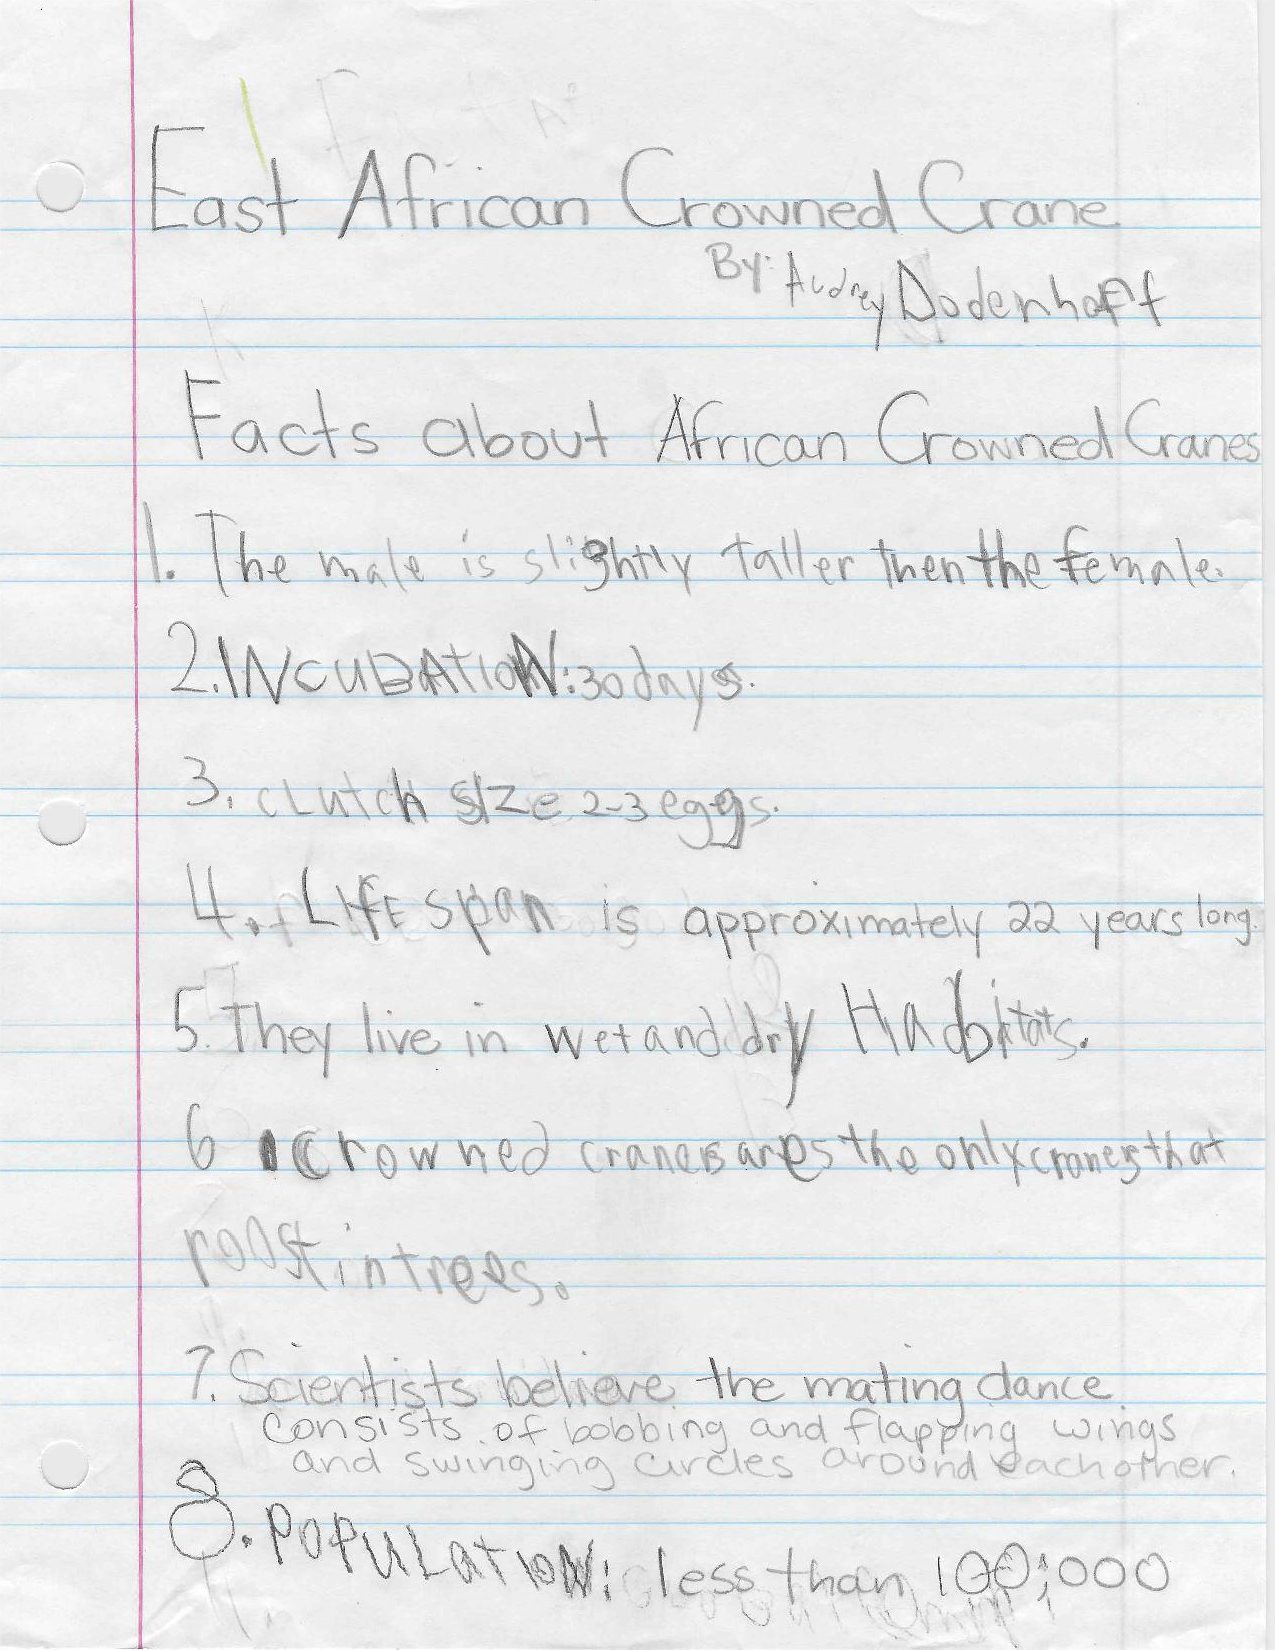 East African Crowned Crane
By: Audrey Dodenhoff
Facts about African Crowned Cranes
1. The male is slightly taller then the female.
2. INCUBATION: 30 days.
3. CLUTCH SIZE 2-3 eggs.
4. LIFE span is approximately 22 years long.
5. They live in wet and dry Habitats.
6 crowned cranes are the only cranes that
roost in trees.
7. Scientists believe the mating dance
consists of bobbing and flapping wings
and swinging circles around each other.
8. POPULATION: less than 100,000